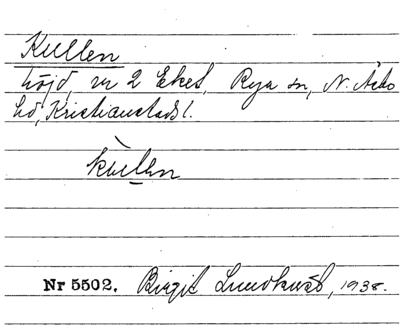 Kullen
höjd, nr 2 Eket, Rya sn, N. Åsbo
hd, Kristianstads l.
kullen
Nr 5502. Birgit Lundkvist, 1938.